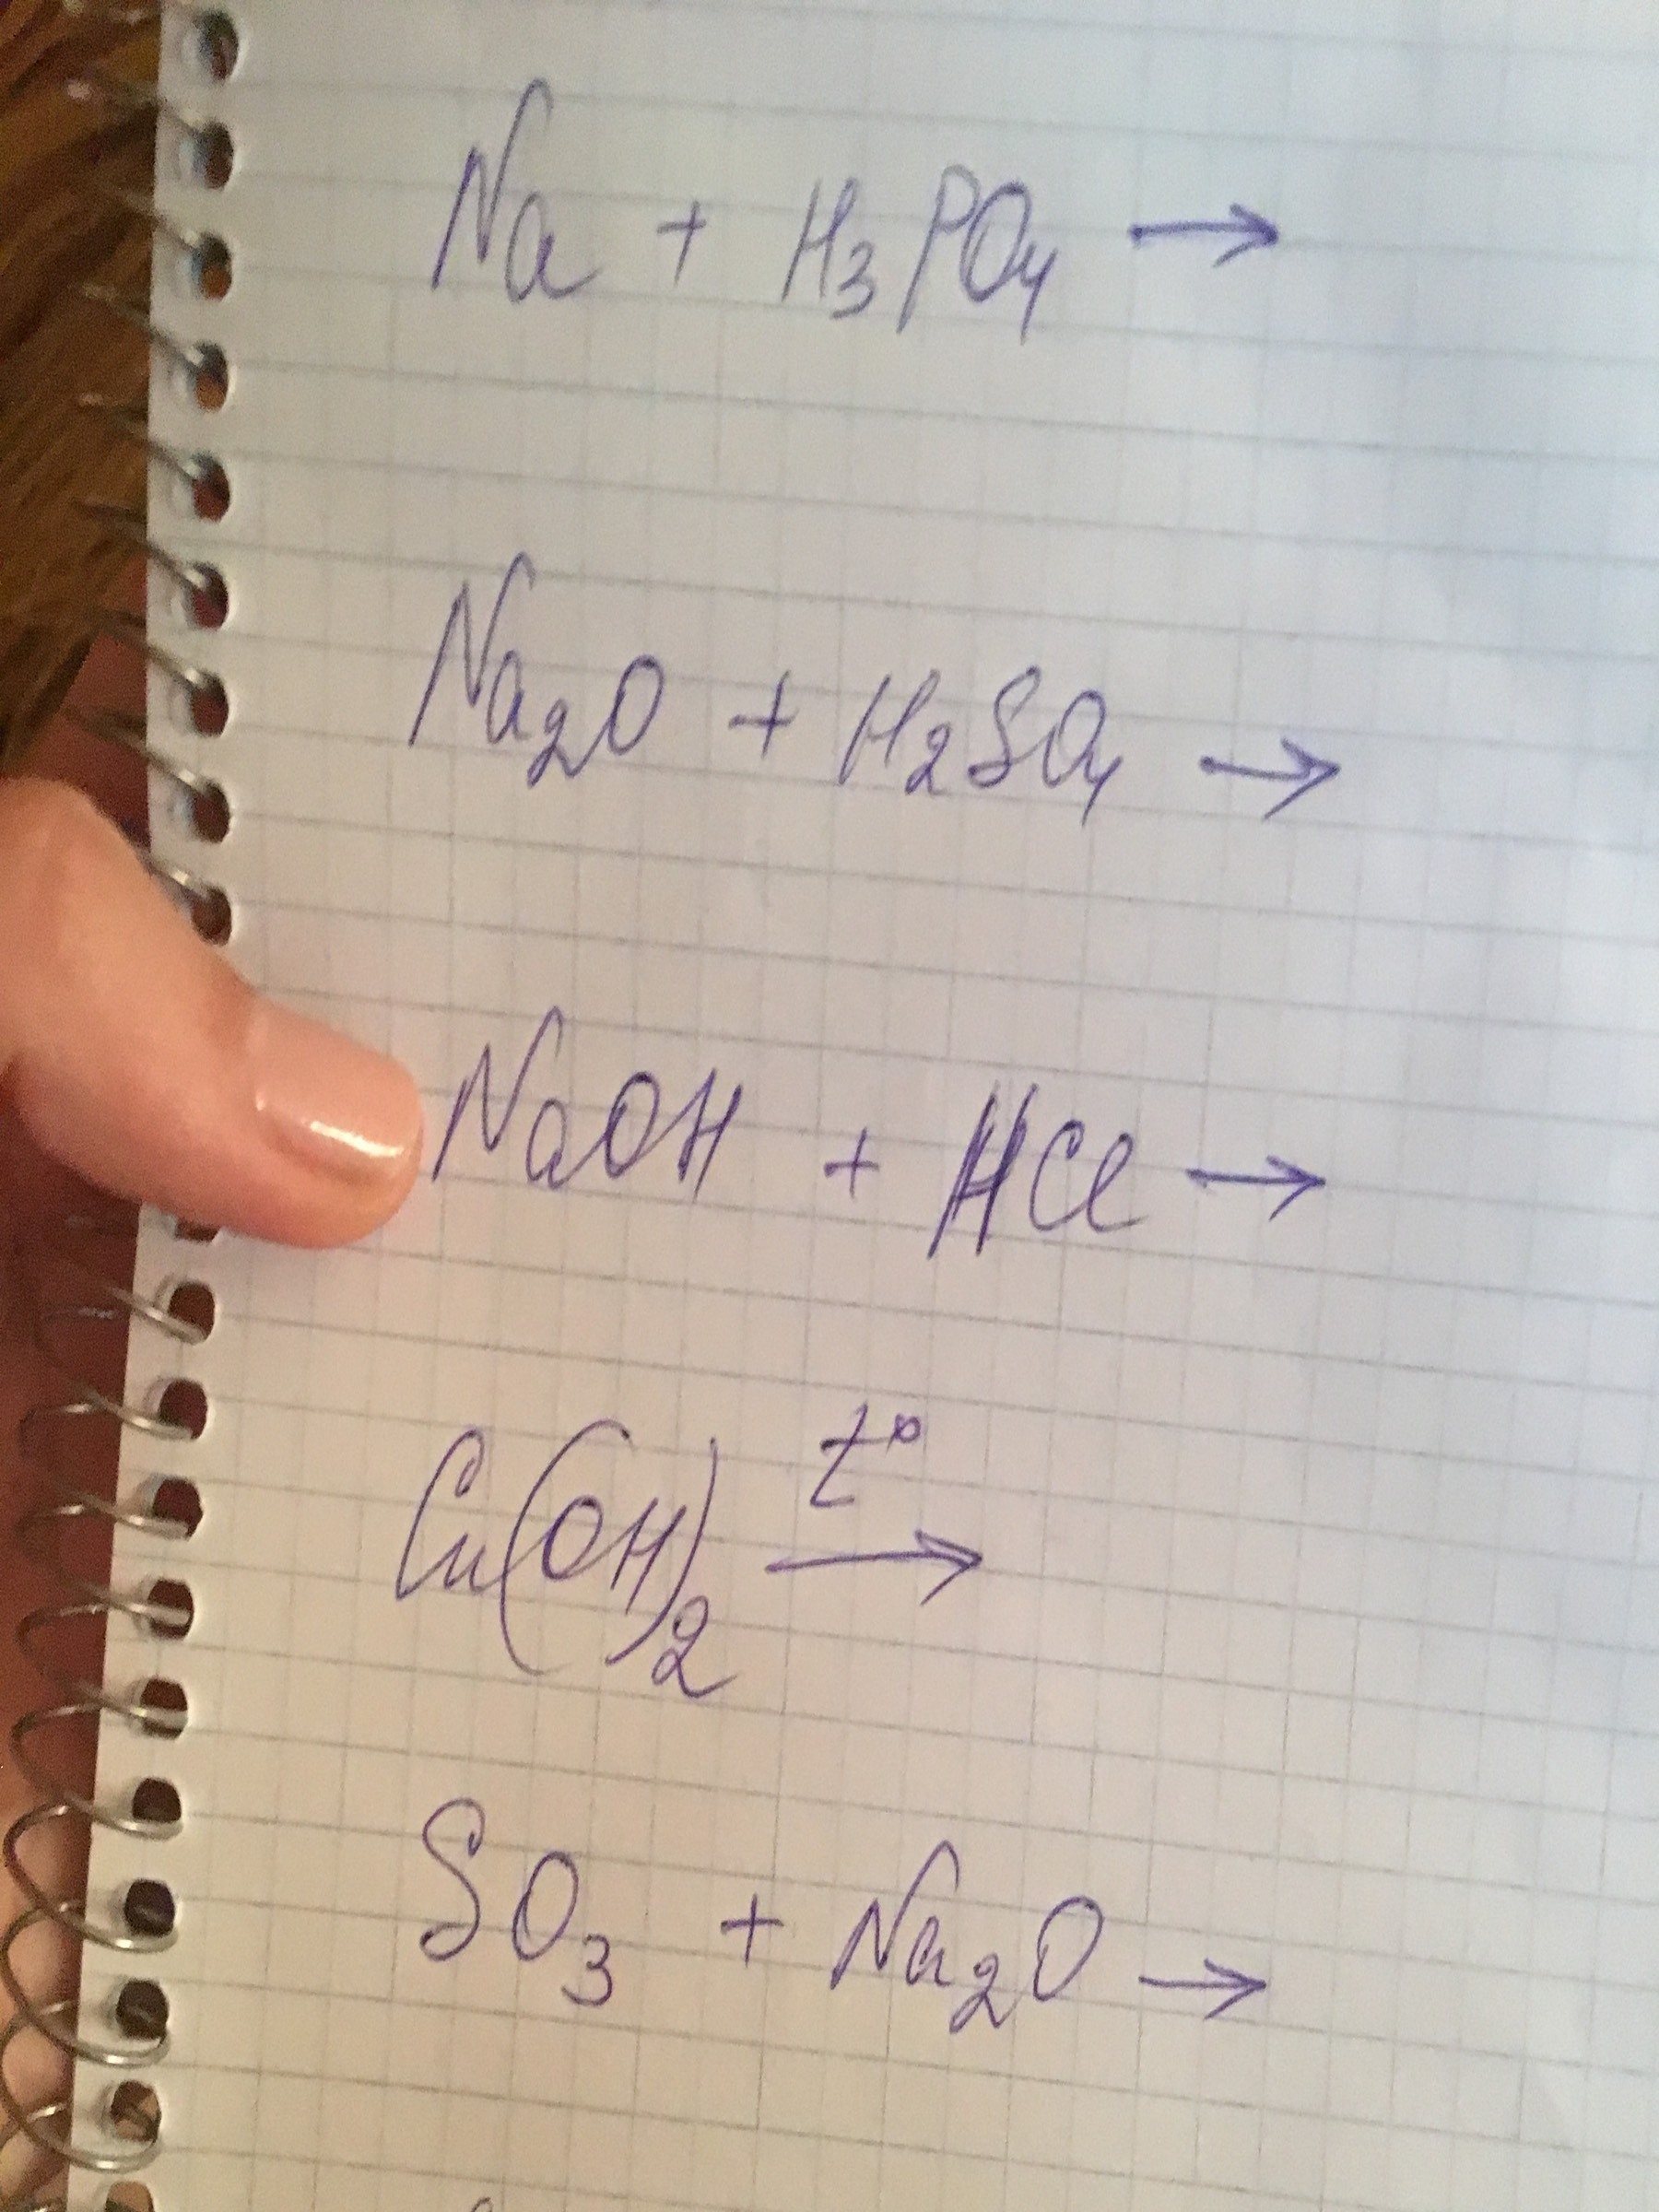 Na + H₃PO₄ →
Na₂O + H₂SO₄ →
NaOH + HCl →
Cu(OH)₂ t° →
SO₃ + Na₂O →